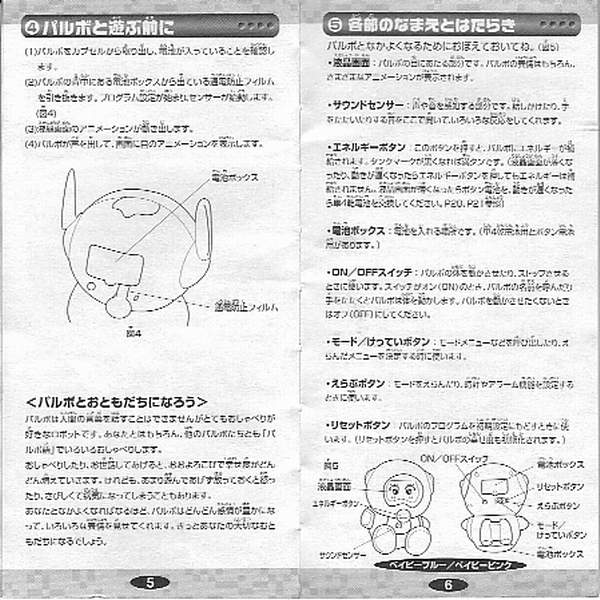 ④パルボと遊ぶ前に
(1)パルボをカプセルから取り出し、電池が入っていることを確認し
ます。
(2)パルボの背中にある電池ボックスから出ている通電防止フィルム
を引き抜きます。プログラム設定が始まりセンサーが始動します。
(図4)
(3)液晶画面のアニメーションが動き出します。
(4)パルボが声を出して、画面に目のアニメーションを表示します。
電池ボックス
通電防止フィルム
図4
＜パルボとおともだちになろう＞
パルボは人間の言葉を話すことはできませんがとてもおしゃべりが
好きなロボットです。あなたとはもちろん、他のパルボたちとも「パル
ボ語」でいろいろおしゃべりします。
おしゃべりしたり、お世話してあげると、おおよろこびで幸せ度がどん
どん増えていきます。けれども、あまり遊んであげず放っておくと怒っ
たり、さびしくて病気になってしまうこともあります。
あなたとなかよくなればなるほど、パルボはどんどん感情が豊かにな
って、いろいろな表情を見せてくれます。きっとあなたの大切なおと
もだちになるでしょう。
5
⑤各部のなまえとはたらき
パルボとなかよくなるためにおぼえておいてね。(図5)
・液晶画面：パルボの目にあたる部分です。パルボの表情はもちろん、
さまざまなアニメーションが表示されます。
・サウンドセンサー：声や音を感知する部分です。話しかけたり、手
をたたいたりする音をここで聞いて、いろいろな反応をしてくれます。
・エネルギーボタン：このボタンを押すと、パルボにエネルギーが補
給されます。タンクマークが黒くなれば満タンです。(液晶画面が薄くな
ったり、動きが遅くなったらエネルギーボタンを押してもエネルギーは補
給されません。液晶画面が薄くなったらボタン電池を、動きが遅くなった
ら単4乾電池を交換してください。P20、P21参照)
・電池ボックス：電池を入れる場所です。(単4乾電池用とボタン電池
用があります。)
・ON／OFFスイッチ：パルボの体を動かさせたり、ストップさせる
ときに使います。スイッチがオン(ON)のとき、パルボの名前を呼んだり
手をたたくとパルボは体を動かします。パルボを動かさせたくないとき
はオフ(OFF)にしてください。
・モード／けっていボタン：モードメニューなどを呼び出したり、え
らんだメニューを決定する時に使います。
・えらぶボタン：モードをえらんだり、時計やアラーム機能を設定する
ときに使います。
・リセットボタン：パルボのプログラムを初期設定にもどすときに使
います。(リセットボタンを押すとパルボの幸せ度も初期化されます。)
図5
ON／OFFスイッチ
液晶画面
エネルギーボタン
サウンドセンサー
電池ボックス
リセットボタン
えらぶボタン
モード／
けっていボタン
電池ボックス
ベイビーブルー／ベイビーピンク
6